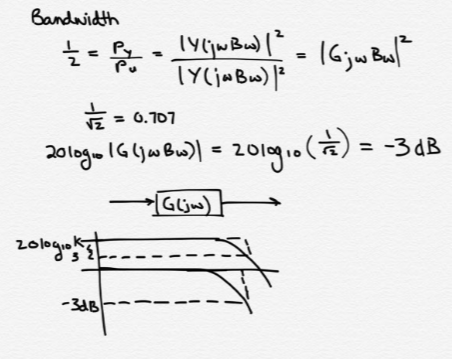 Bandwidth
1/2 = Py/Pu = |Y(jωBω)|²/|Y(jωBω)|² = |GjωBω|²
1/√2 = 0.707
20log₁₀|G(jωBω)| = 20log₁₀(1/√2) = -3dB
G(jω)
20log₁₀K
3
-3dB